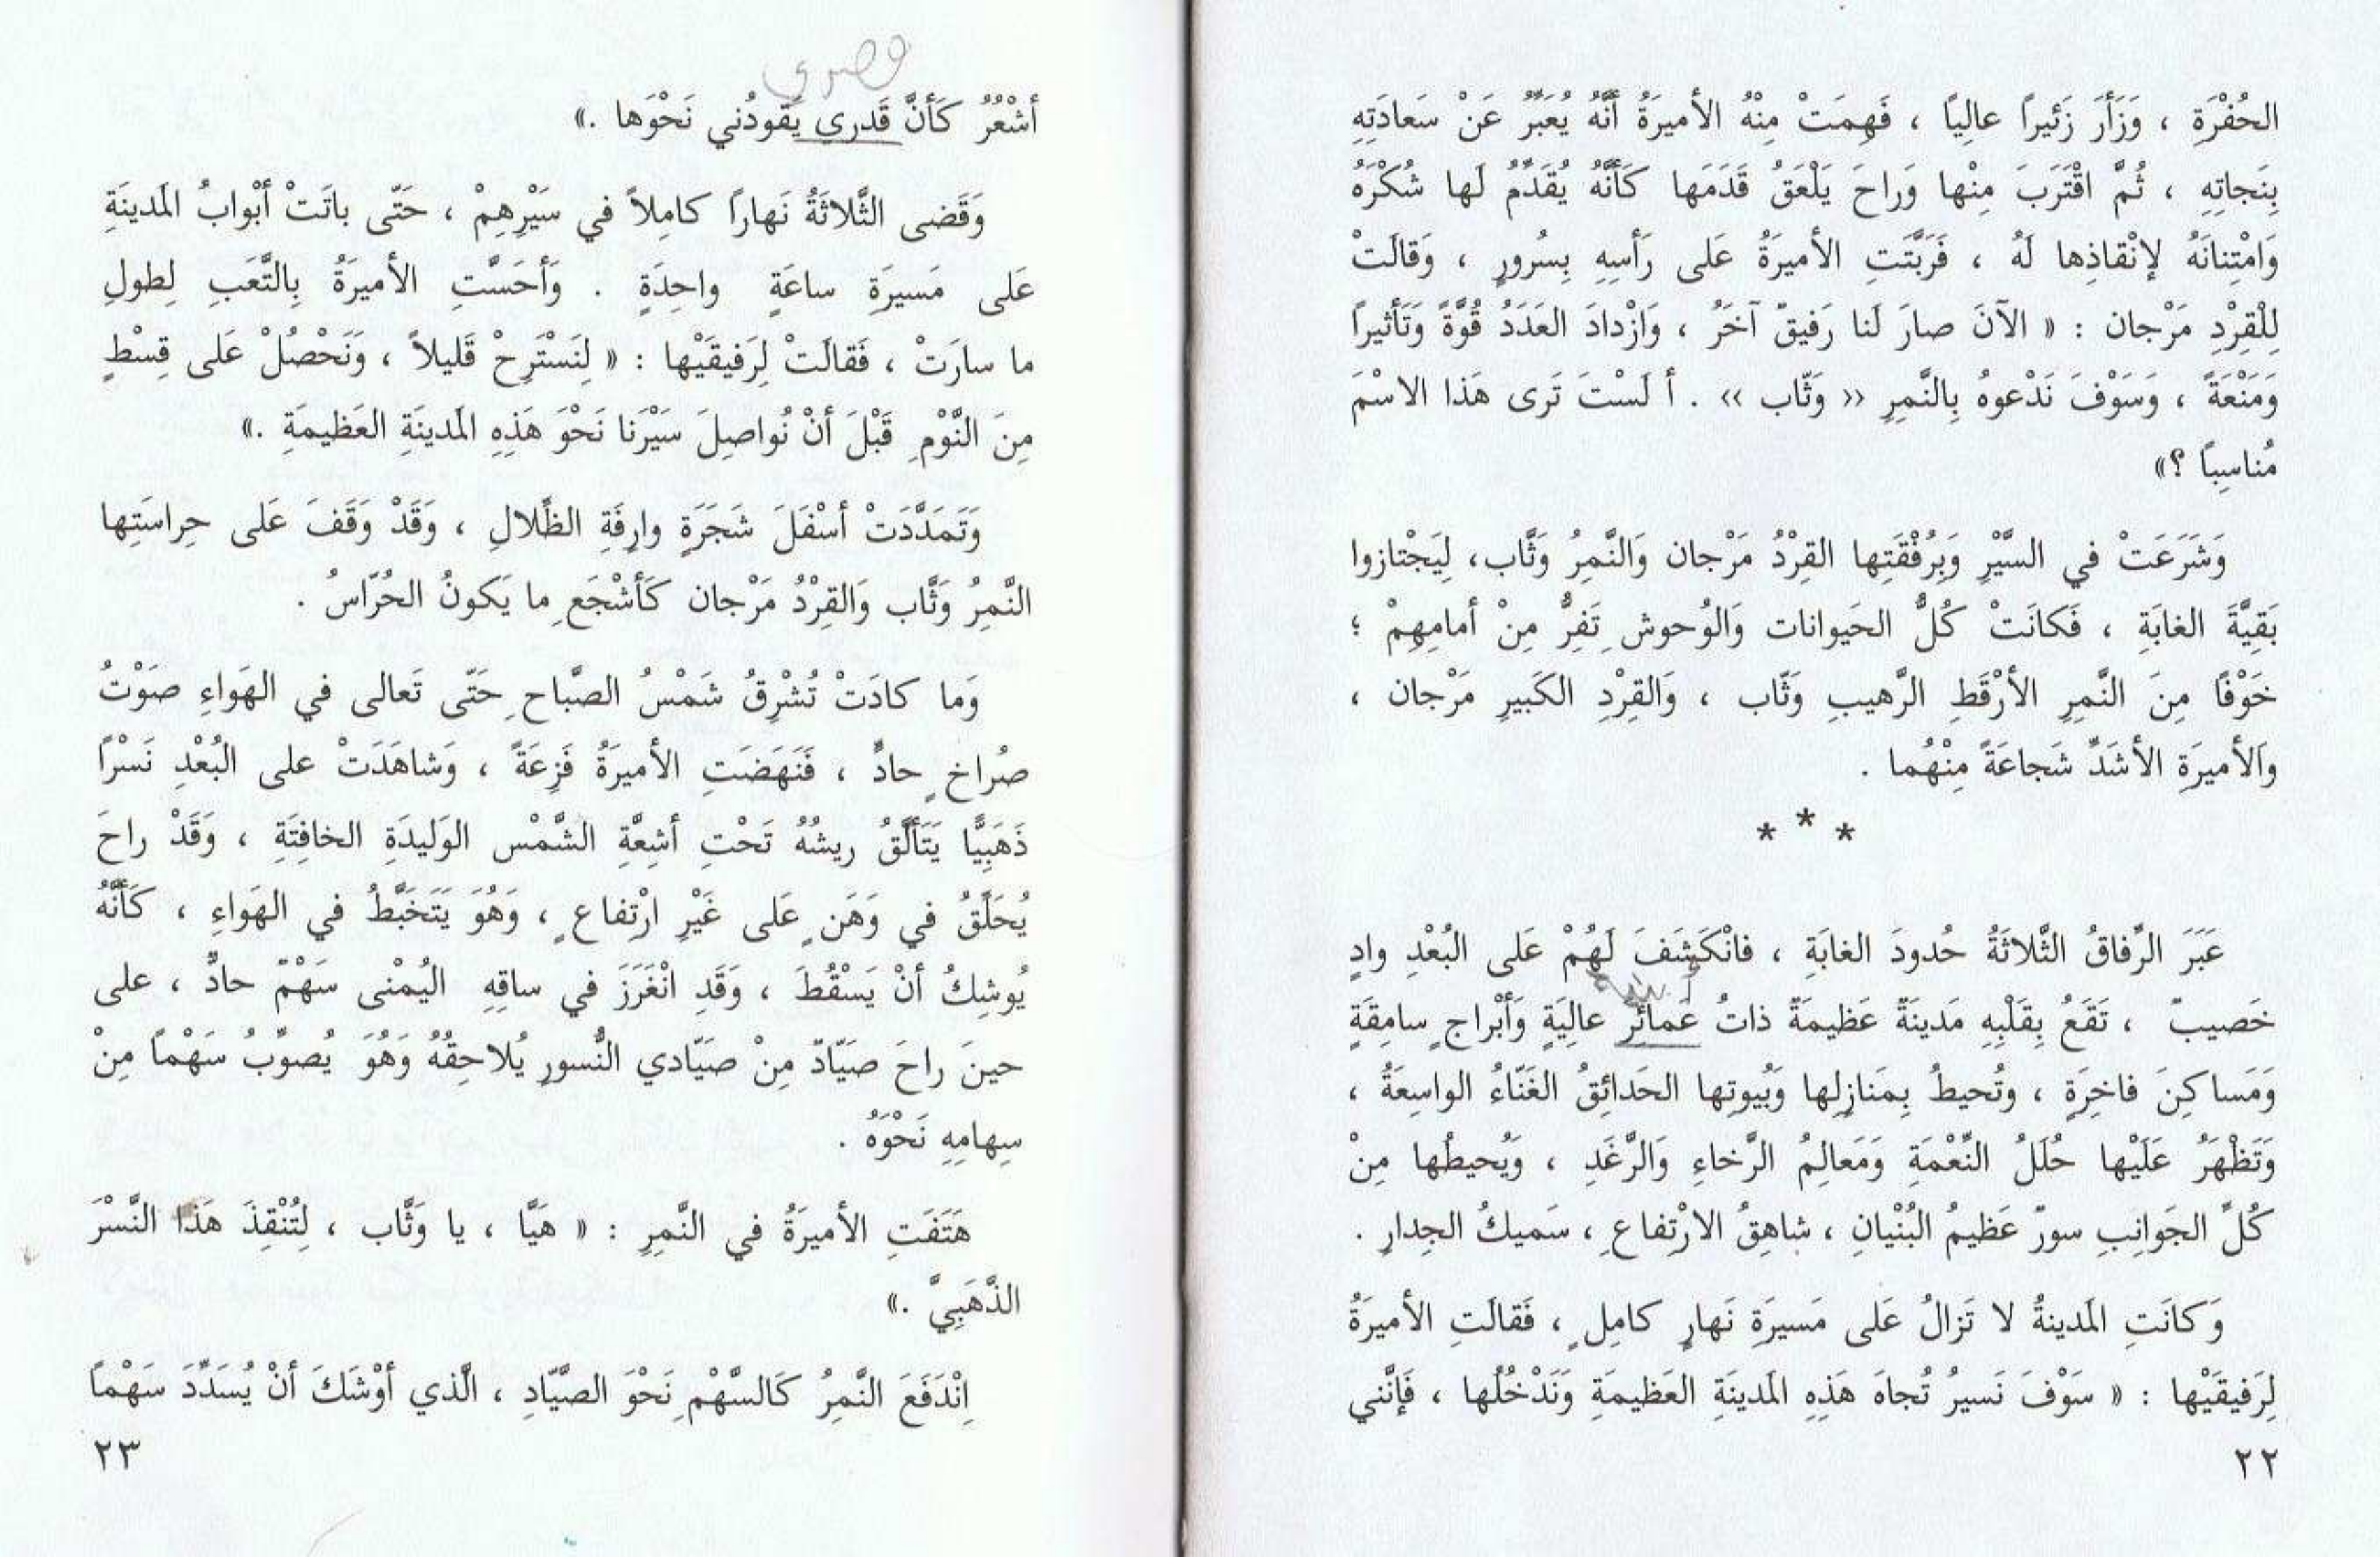 الحُفْرَةِ ، وَزَأَرَ زَئيراً عالِياً ، فَهِمَتْ مِنْهُ الأميرَةُ أَنَّهُ يُعَبِّرُ عَنْ سَعادَتِهِ
بِنَجاتِهِ ، ثُمَّ اقْتَرَبَ مِنْها وَراحَ يَلْعَقُ قَدَمَها كَأَنَّهُ يُقَدِّمُ لَها شُكْرَهُ
وَامْتِنانَهُ لإنْقاذِها لَهُ ، فَرَبَّتَتِ الأميرَةُ عَلى رَأسِهِ بِسُرورٍ ، وَقالَتْ
لِلْقِرْدِ مَرْجان : « الآنَ صارَ لَنا رَفيقٌ آخَرُ ، وَازْدادَ العَدَدُ قُوَّةً وَتَأثيراً
وَمَنْعَةً ، وَسَوْفَ نَدْعوهُ بِالنَّمِرِ « وَثّاب » . أ لَسْتَ تَرى هَذا الاسْمَ
مُناسِباً ؟»
وَشَرَعَتْ في السَّيْرِ وَبِرُفْقَتِها القِرْدُ مَرْجان وَالنَّمِرُ وَثَّاب، لِيَجْتازوا
بَقِيَّةَ الغابَةِ ، فَكانَتْ كُلُّ الحَيوانات وَالوُحوشِ تَفِرُّ مِنْ أمامِهِمْ ؛
خَوْفًا مِنَ النَّمِرِ الأرْقَطِ الرَّهيبِ وَثّاب ، وَالقِرْدِ الكَبيرِ مَرْجان ،
وَالأميرَةِ الأشَدِّ شَجاعَةً مِنْهُما .
* * *
عَبَرَ الرِّفاقُ الثَّلاثَةُ حُدودَ الغابَةِ ، فانْكَشَفَ لَهُمْ عَلى البُعْدِ وادٍ
خَصيبٌ ، تَقَعُ بِقَلْبِهِ مَدينَةٌ عَظيمَةٌ ذاتُ عَمائِرِ عالِيَةٍ وَأَبْراجٍ سامِقَةٍ
وَمَساكِنَ فاخِرَةٍ ، وتُحيطُ بِمَنازِلِها وَبُيوتِها الحَدائِقُ الغَنّاءُ الواسِعَةُ ،
وَتَظْهَرُ عَلَيْها حُلَلُ النِّعْمَةِ وَمَعالِمُ الرَّخاءِ وَالرَّغَدِ ، وَيُحيطُها مِنْ
كُلِّ الجَوانِبِ سورٌ عَظيمُ البُنْيانِ ، شاهِقُ الارْتِفاعِ ، سَميكُ الجِدارِ .
وَكانَتِ المَدينةُ لا تَزالُ عَلى مَسيرَةِ نَهارٍ كامِلٍ ، فَقالَتِ الأميرَةُ
لِرَفيقَيْها : « سَوْفَ نَسيرُ تُجاهَ هَذِهِ المَدينَةِ العَظيمَةِ وَنَدْخُلُها ، فَإنَّني
٢٢
أشْعُرُ كَأنَّ قَدري يَقودُني نَحْوَها .»
وَقَضى الثَّلاثَةُ نَهاراً كامِلاً في سَيْرِهِمْ ، حَتّى باتَتْ أبْوابُ المَدينَةِ
عَلى مَسيرَةِ ساعَةٍ واحِدَةٍ . وَأحَسَّتِ الأميرَةُ بِالتَّعَبِ لِطولِ
ما سارَتْ ، فَقالَتْ لِرَفيقَيْها : « لِنَسْتَرِحْ قَليلاً ، وَنَحْصُلْ عَلى قِسْطٍ
مِنَ النَّوْمِ قَبْلَ أنْ نُواصِلَ سَيْرَنا نَحْوَ هَذِهِ المَدينَةِ العَظيمَةِ .»
وَتَمَدَّدَتْ أسْفَلَ شَجَرَةٍ وارِفَةِ الظِّلالِ ، وَقَدْ وَقَفَ عَلى حِراسَتِها
النَّمِرُ وَثَّاب وَالقِرْدُ مَرْجان كَأشْجَعِ ما يَكونُ الحُرّاسُ .
وَما كادَتْ تُشْرِقُ شَمْسُ الصَّباحِ حَتّى تَعالى في الهَواءِ صَوْتُ
صُراخٍ حادٍّ ، فَنَهَضَتِ الأميرَةُ فَزِعَةً ، وَشاهَدَتْ على البُعْدِ نَسْرًا
ذَهَبِيًّا يَتَأَلَّقُ ريشُهُ تَحْتِ أشِعَّةِ الشَّمْس الوَليدَةِ الخافِتَةِ ، وَقَدْ راحَ
يُحَلِّقُ في وَهَنٍ عَلى غَيْرِ ارْتِفاعٍ ، وَهُوَ يَتَخَبَّطُ في الهَواءِ ، كَأَنَّهُ
يُوشِكُ أنْ يَسْقُطَ ، وَقَدِ انْغَرَزَ في ساقِهِ اليُمْنى سَهْمٌ حادٌّ ، على
حينَ راحَ صَيّادٌ مِنْ صَيّادي النُّسورِ يُلاحِقُهُ وَهُوَ يُصوِّبُ سَهْماً مِنْ
سِهامِهِ نَحْوَهُ .
هَتَفَتِ الأميرَةُ في النَّمِرِ : « هَيَّا ، يا وَثَّاب ، لِتُنْقِذَ هَذا النَّسْرَ
الذَّهَبِيَّ .»
اِنْدَفَعَ النَّمِرُ كَالسَّهْمِ نَحْوَ الصَّيّادِ ، الَّذي أوْشَكَ أنْ يُسَدِّدَ سَهْماً
٢٣